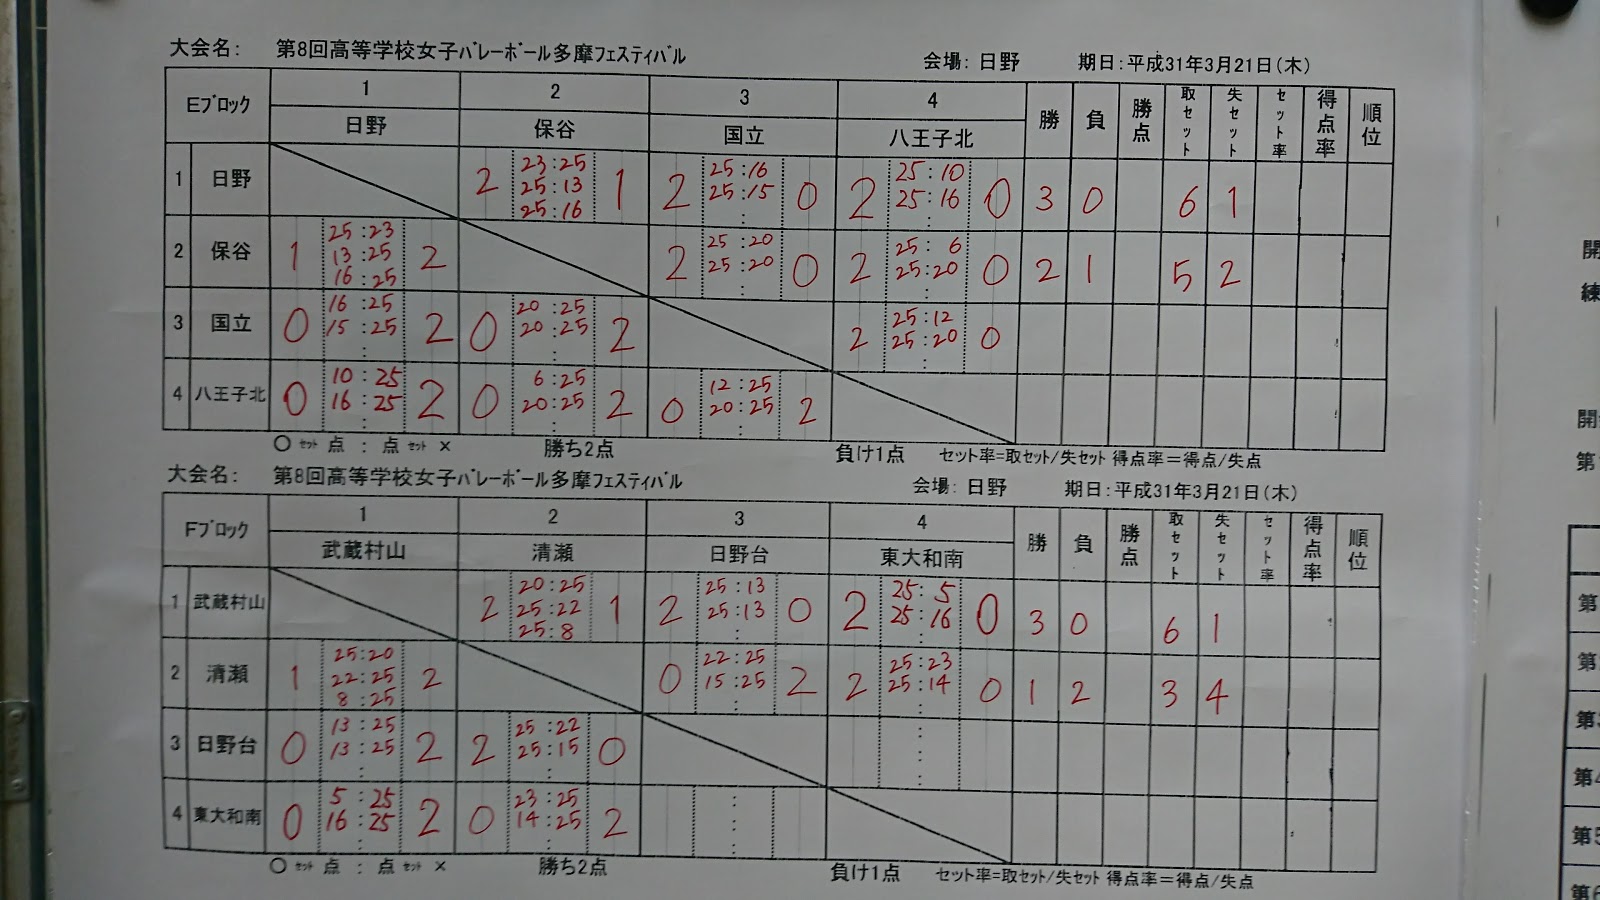 大会名: 第8回高等学校女子ﾊﾞﾚｰﾎﾞｰﾙ多摩ﾌｪｽﾃｨﾊﾞﾙ 会場: 日野 期日:平成31年3月21日(木)
Eﾌﾞﾛｯｸ 1 2 3 4 勝 負 勝点 取セット 失セット セット率 得点率 順位
日野 保谷 国立 八王子北
1 日野 2 23:25 25:13 25:16 1 2 25:16 25:15 : 0 2 25:10 25:16 : 0 3 0 6 1
2 保谷 1 25:23 13:25 16:25 2 2 25:20 25:20 : 0 2 25:6 25:20 : 0 2 1 5 2
3 国立 0 16:25 15:25 : 2 0 20:25 20:25 : 2 2 25:12 25:20 : 0
4 八王子北 0 10:25 16:25 : 2 0 6:25 20:25 : 2 0 12:25 20:25 : 2
○ ｾｯﾄ 点 : 点 ｾｯﾄ × 勝ち2点 負け1点 セット率=取セット/失セット 得点率=得点/失点
大会名: 第8回高等学校女子ﾊﾞﾚｰﾎﾞｰﾙ多摩ﾌｪｽﾃｨﾊﾞﾙ 会場: 日野 期日:平成31年3月21日(木)
Fﾌﾞﾛｯｸ 1 2 3 4 勝 負 勝点 取セット 失セット セット率 得点率 順位
武蔵村山 清瀬 日野台 東大和南
1 武蔵村山 2 20:25 25:22 25:8 1 2 25:13 25:13 : 0 2 25:5 25:16 : 0 3 0 6 1
2 清瀬 1 25:20 22:25 8:25 2 0 22:25 15:25 : 2 2 25:23 25:14 : 0 1 2 3 4
3 日野台 0 13:25 13:25 : 2 2 25:22 25:15 : 0 : : :
4 東大和南 0 5:25 16:25 : 2 0 23:25 14:25 : 2 : : :
○ ｾｯﾄ 点 : 点 ｾｯﾄ × 勝ち2点 負け1点 セット率=取セット/失セット 得点率=得点/失点
開
練
第
第
第
第
第